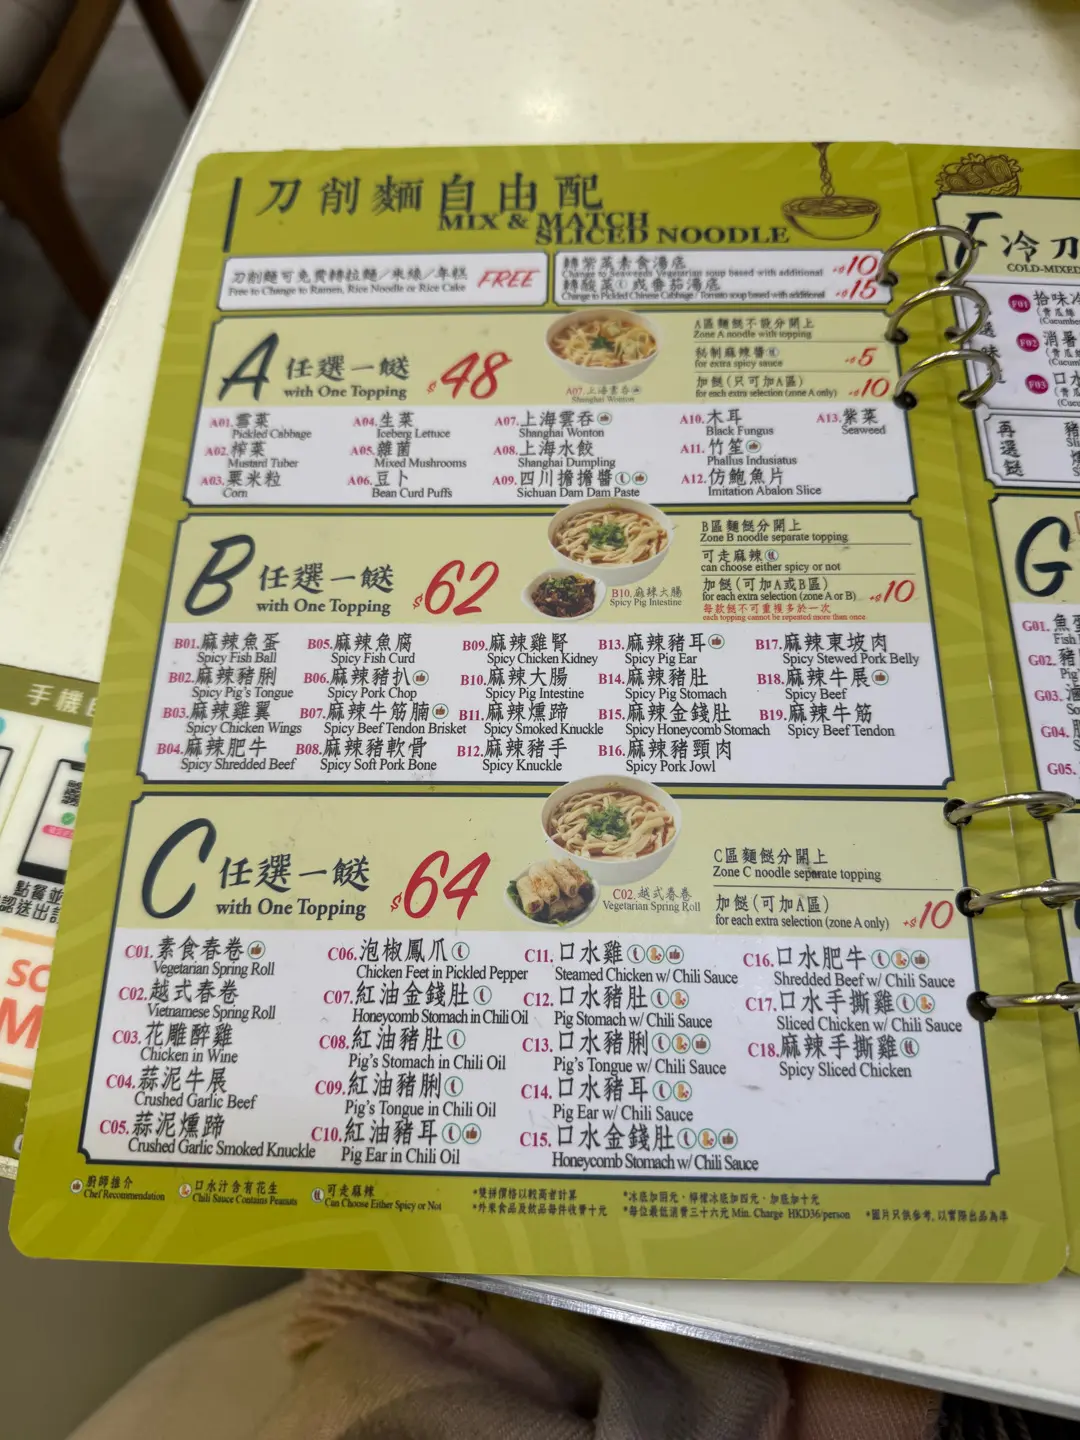 刀削麵自由配
MIX & MATCH
SLICED NOODLE
刀削麵可免費轉拉麵/米線/年糕
Free to Change to Ramen, Rice Noodle or Rice Cake
FREE
轉紫菜素食湯底
Change to Seaweeds Vegetarian soup based with additional +$10
轉酸菜或蕃茄湯底
Change to Pickled Chinese Cabbage / Tomato soup based with additional +$15
A 任選一餸
with One Topping
$48
A07.上海雲吞
Shanghai Wonton
A區麵餸不設分開上
Zone A noodle with topping
秘制麻辣醬
for extra spicy sauce +$5
加餸(只可加A區)
for each extra selection (zone A only) +$10
A01.雪菜
Pickled Cabbage
A02.榨菜
Mustard Tuber
A03.粟米粒
Corn
A04.生菜
Iceberg Lettuce
A05.雜菌
Mixed Mushrooms
A06.豆卜
Bean Curd Puffs
A07.上海雲吞
Shanghai Wonton
A08.上海水餃
Shanghai Dumpling
A09.四川擔擔醬
Sichuan Dam Dam Paste
A10.木耳
Black Fungus
A11.竹笙
Phallus Indusiatus
A12.仿鮑魚片
Imitation Abalon Slice
A13.紫菜
Seaweed
B 任選一餸
with One Topping
$62
B10.麻辣大腸
Spicy Pig Intestine
B區麵餸分開上
Zone B noodle separate topping
可走麻辣
can choose either spicy or not
加餸(可加A或B區)
for each extra selection (zone A or B) +$10
每款餸不可重複多於一次
each topping cannot be repeated more than once
B01.麻辣魚蛋
Spicy Fish Ball
B02.麻辣豬脷
Spicy Pig's Tongue
B03.麻辣雞翼
Spicy Chicken Wings
B04.麻辣肥牛
Spicy Shredded Beef
B05.麻辣魚腐
Spicy Fish Curd
B06.麻辣豬扒
Spicy Pork Chop
B07.麻辣牛筋腩
Spicy Beef Tendon Brisket
B08.麻辣豬軟骨
Spicy Soft Pork Bone
B09.麻辣雞腎
Spicy Chicken Kidney
B10.麻辣大腸
Spicy Pig Intestine
B11.麻辣燻蹄
Spicy Smoked Knuckle
B12.麻辣豬手
Spicy Knuckle
B13.麻辣豬耳
Spicy Pig Ear
B14.麻辣豬肚
Spicy Pig Stomach
B15.麻辣金錢肚
Spicy Honeycomb Stomach
B16.麻辣豬頸肉
Spicy Pork Jowl
B17.麻辣東坡肉
Spicy Stewed Pork Belly
B18.麻辣牛展
Spicy Beef
B19.麻辣牛筋
Spicy Beef Tendon
C 任選一餸
with One Topping
$64
C02.越式春卷
Vegetarian Spring Roll
C區麵餸分開上
Zone C noodle separate topping
加餸(可加A區)
for each extra selection (zone A only) +$10
C01.素食春卷
Vegetarian Spring Roll
C02.越式春卷
Vietnamese Spring Roll
C03.花雕醉雞
Chicken in Wine
C04.蒜泥牛展
Crushed Garlic Beef
C05.蒜泥燻蹄
Crushed Garlic Smoked Knuckle
C06.泡椒鳳爪
Chicken Feet in Pickled Pepper
C07.紅油金錢肚
Honeycomb Stomach in Chili Oil
C08.紅油豬肚
Pig's Stomach in Chili Oil
C09.紅油豬脷
Pig's Tongue in Chili Oil
C10.紅油豬耳
Pig Ear in Chili Oil
C11.口水雞
Steamed Chicken w/ Chili Sauce
C12.口水豬肚
Pig Stomach w/ Chili Sauce
C13.口水豬脷
Pig's Tongue w/ Chili Sauce
C14.口水豬耳
Pig Ear w/ Chili Sauce
C15.口水金錢肚
Honeycomb Stomach w/ Chili Sauce
C16.口水肥牛
Shredded Beef w/ Chili Sauce
C17.口水手撕雞
Sliced Chicken w/ Chili Sauce
C18.麻辣手撕雞
Spicy Sliced Chicken
廚師推介
Chef Recommendation
口水汁含有花生
Chili Sauce Contains Peanuts
可走麻辣
Can Choose Either Spicy or Not
*雙拼價格以較高者計算
*外來食品及飲品每件收費十元
*冰底加四元,檸檬冰底加四元,加底加十元
*每位最低消費三十六元 Min. Charge HKD36/person
*圖片只供參考,以實際出品為準
F 冷刀
COLD-MIXED
F01 拾味
F02 消暑
F03 口水
再選餸
G
G01.魚蛋
G02.豬
G03.
G04.
G05.
手機
點餐並
認送出